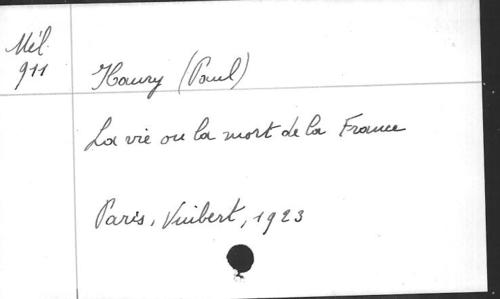 Mél.
911
Haury (Paul)
La vie ou la mort de la France
Paris, Vuibert, 1923